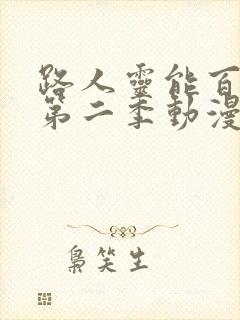 路人靈能百
第二季動漫
梟笑生